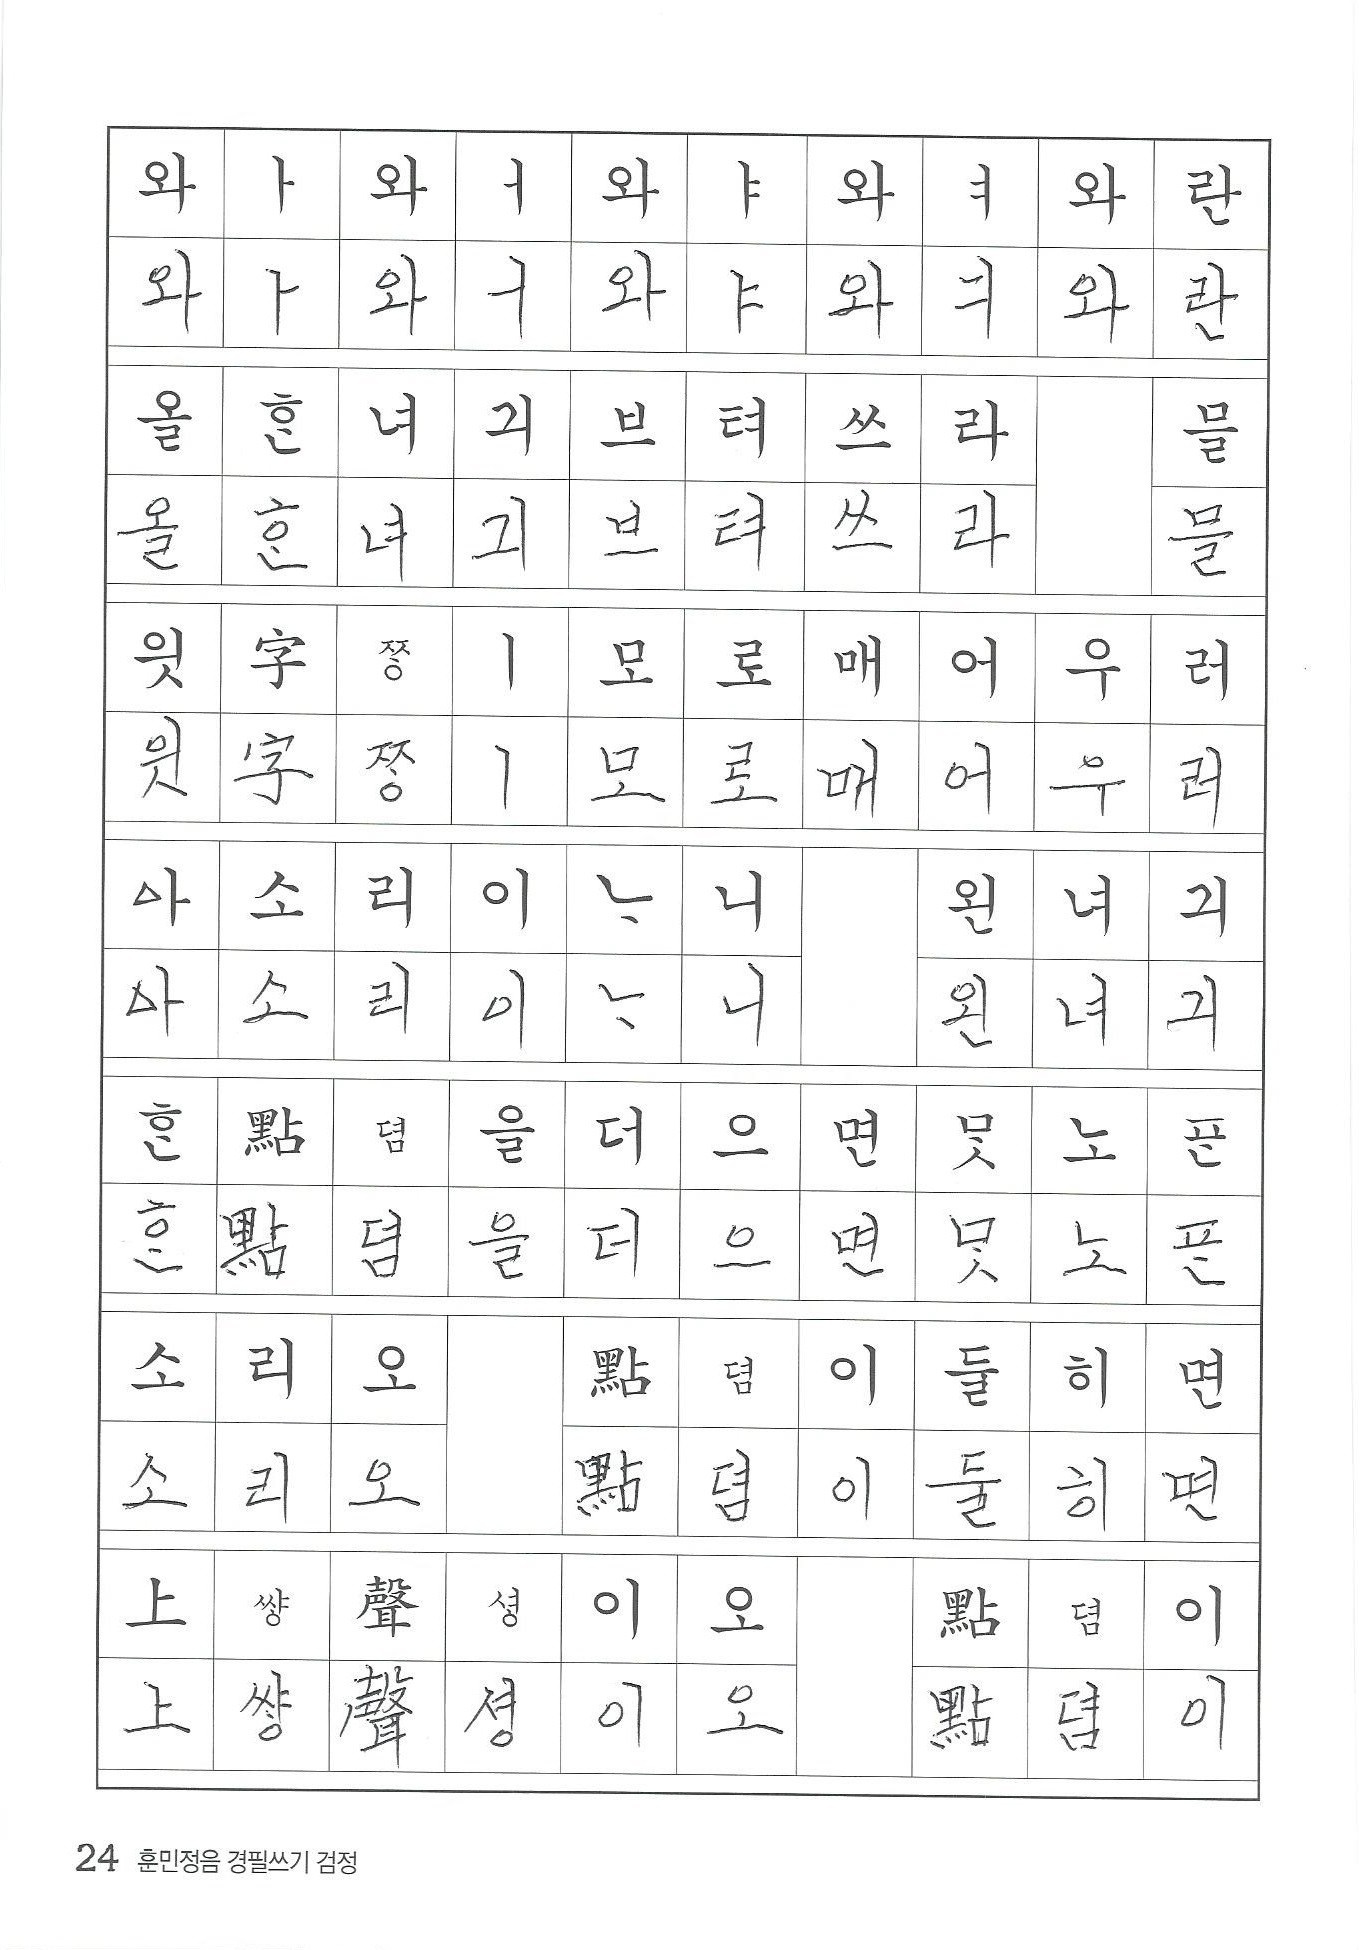 와 ㅏ 와 ㅓ 와 ㅑ 와 ㅕ 와 란
와 ㅏ 와 ㅓ 와 ㅑ 와 ㅕ 와 란
올 ᄒᆞᆫ 녀 긔 브 텨 쓰 라 믈
올 ᄒᆞᆫ 녀 긔 브 텨 쓰 라 믈
읫 字 ᄍᆞᆼ ㅣ 모 로 매 어 우 러
읫 字 ᄍᆞᆼ ㅣ 모 로 매 어 우 러
ᅀᅡ 소 리 이 ᄂᆞ 니 왼 녀 긔
ᅀᅡ 소 리 이 ᄂᆞ 니 왼 녀 긔
ᄒᆞᆫ 點 뎜 을 더 으 면 ᄆᆞᆺ 노 ᄑᆞᆫ
ᄒᆞᆫ 點 뎜 을 더 으 면 ᄆᆞᆺ 노 ᄑᆞᆫ
소 리 오 點 뎜 이 둘 히 면
소 리 오 點 뎜 이 둘 히 면
上 썅 聲 셩 이 오 點 뎜 이
上 썅 聲 셩 이 오 點 뎜 이
24 훈민정음 경필쓰기 검정